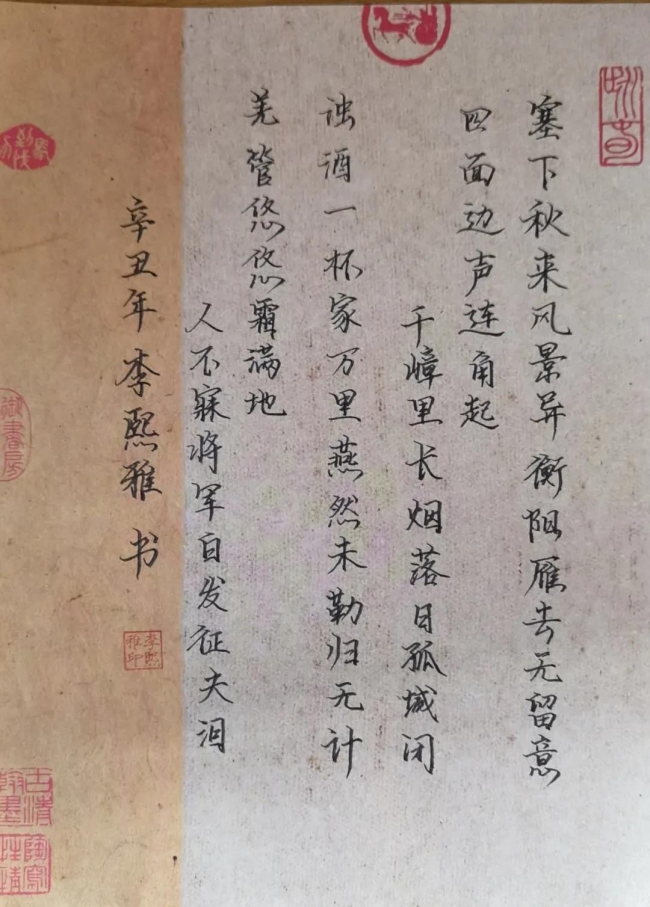 塞下秋来风景异衡阳雁去无留意
四面边声连角起
千嶂里长烟落日孤城闭
浊酒一杯家万里燕然未勒归无计
羌管悠悠霜满地
人不寐将军白发征夫泪
辛丑年李熙雅书
李熙雅印
御书房